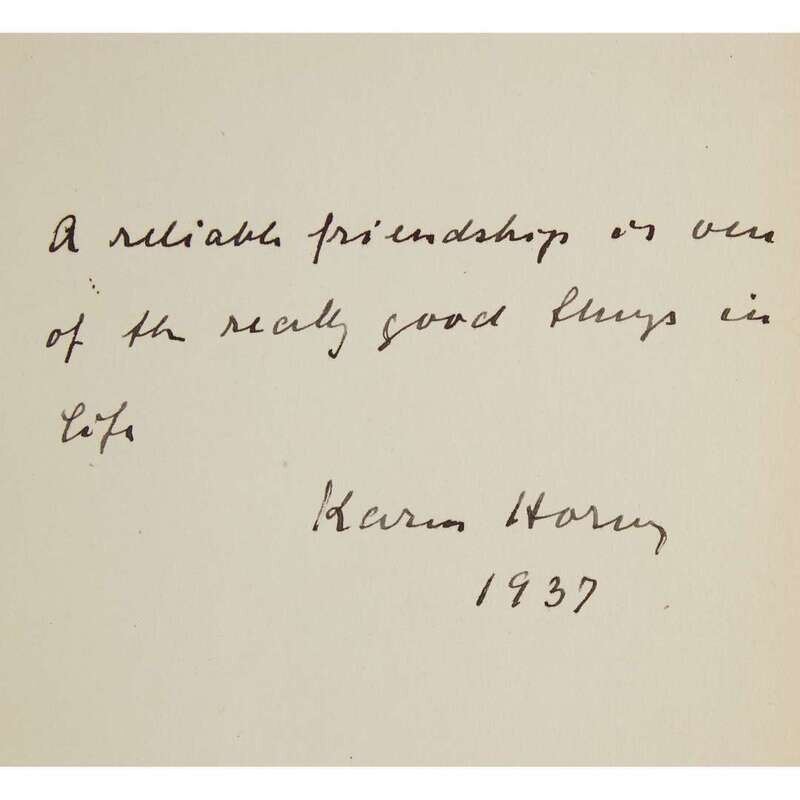 A reliable friendship is one
of the really good things in
life
Karen Horney
1937